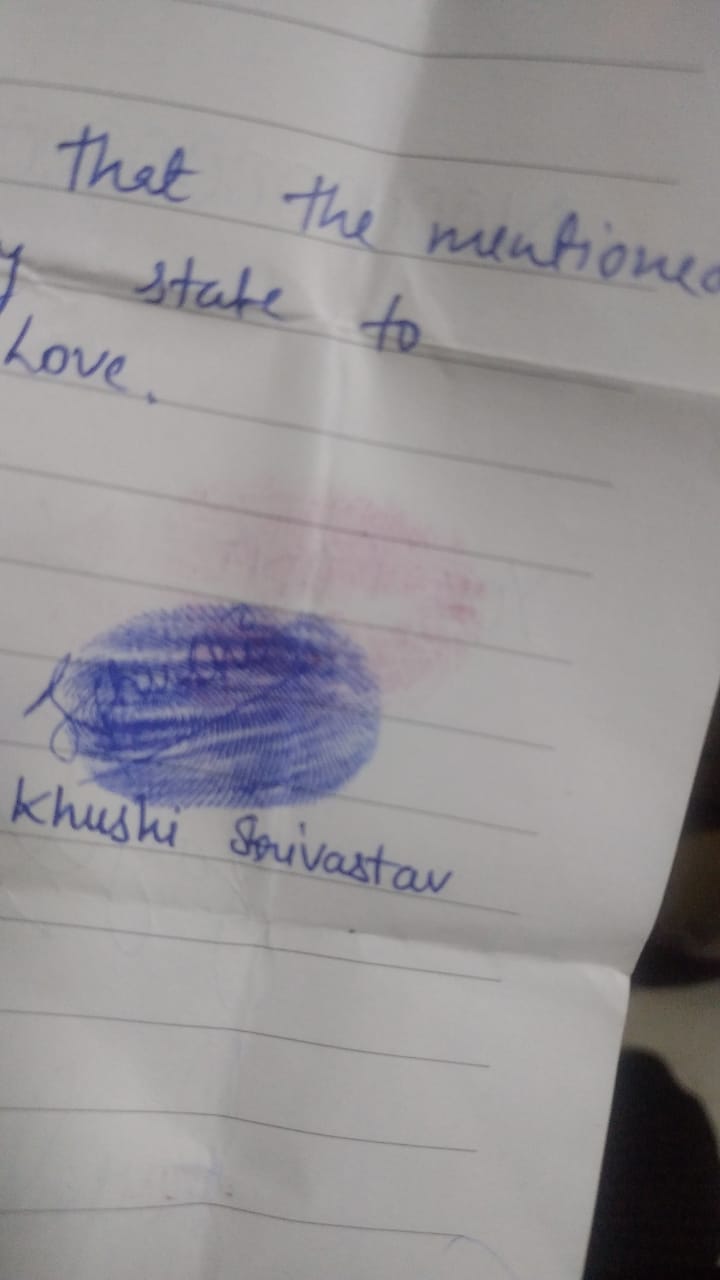 that the mentioned
y state to
Love.
Khushi Srivastav